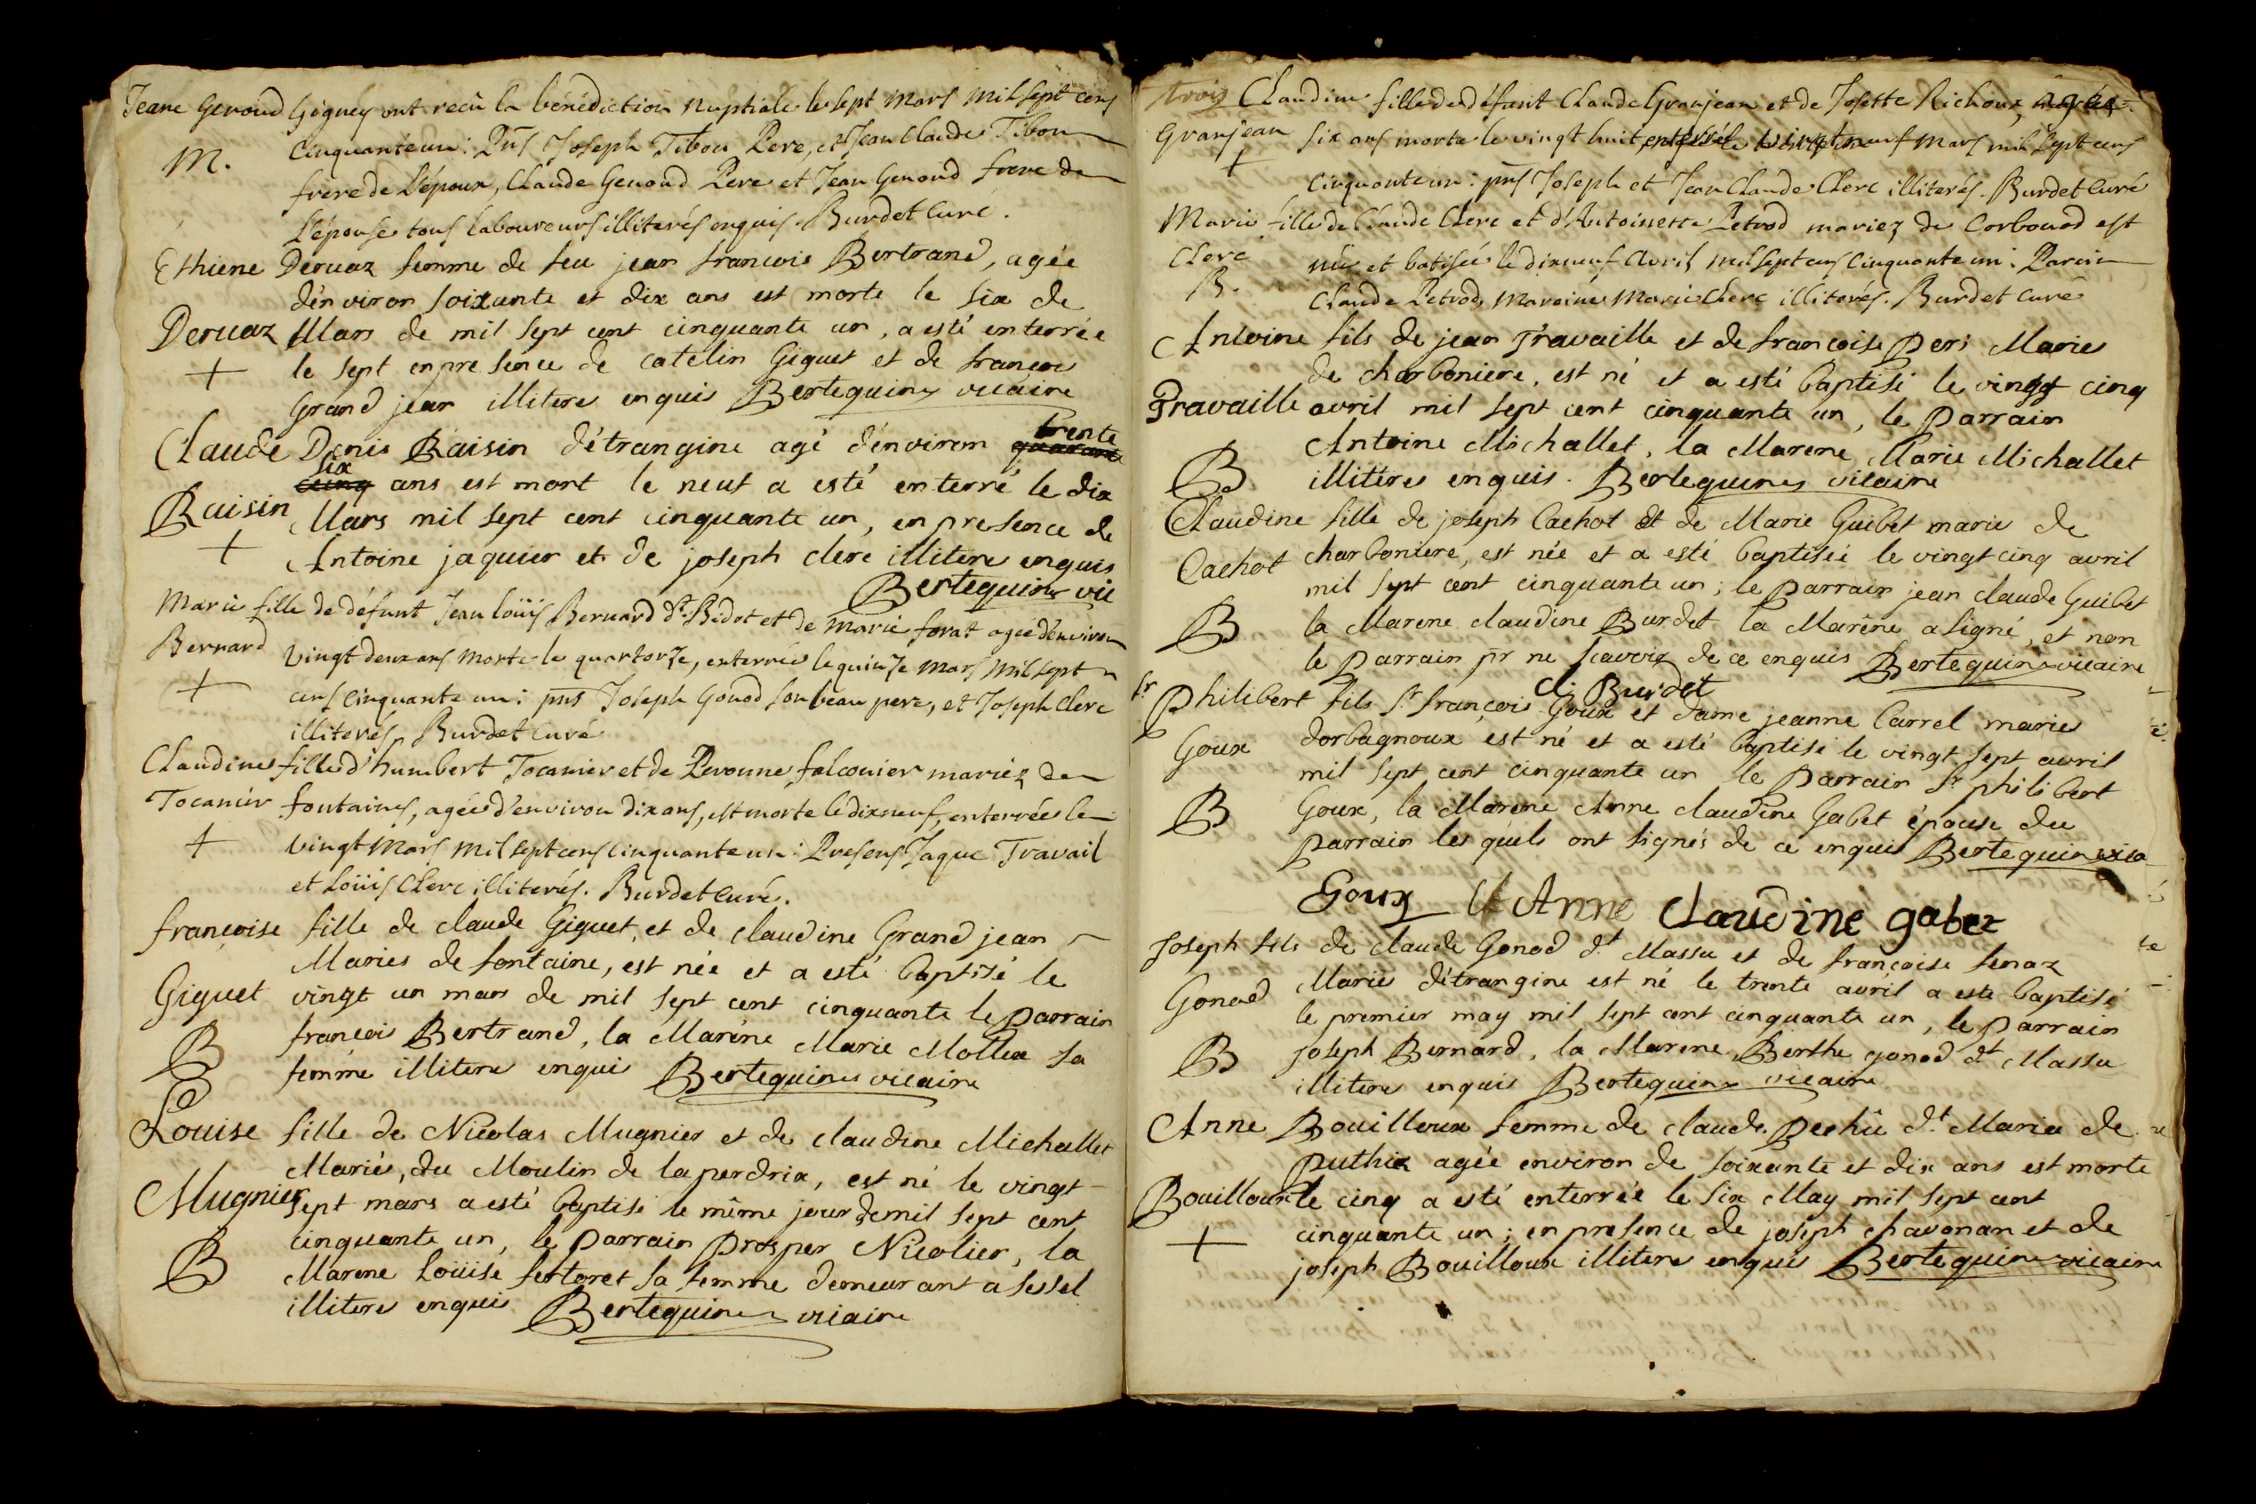 Jeane Genoud Géguey ont recû la bénédiction nuptiale le sept Mars mil sept cens
M. cinquante un: Pns Joseph Tibou Pere, et Jean Claude Tibou
frere de L'époux, Claude Genoud Pere et Jean Genoud frere de
L'épouse tous Laboureurs illiterés enquis. Burdet Curé.
Ethiene Deruaz femme de feu jean francois Bertrand, agée
d'environ soixante et dix ans est morte le six de
Deruaz Mars de mil sept cent cinquante un, a esté enterrée
+ le sept en presence de catelin Giguet et de francois
Grand jean illitere enquis Bertequin vicaire
Claude Denis Raisin d'étrangine agé d'environ quarante trente
cinq six ans est mort le neuf a esté enterré le dix
Raisin Mars mil sept cent cinquante un, en presence de
+ Antoine jaquier et de joseph clerc illitere enquis
Bertequin vic
Marie fille de défunt Jean Loüis Bernard dt. Bidot et de Marie forat agée d'environ
Bernard vingt deux ans morte le quartorze, enterrée le quinze Mars mil sept
+ cens cinquante un: pns Joseph Gonod son beau pere, et Joseph Clerc
illiterés. Burdet Curé
Claudine fille d'humbert Tocanier et de Pevonne falconier mariez de
Tocanier fontaines, agée d'environ dix ans, est morte le dixneuf, enterrée le
+ vingt Mars mil sept cens cinquante un: Presens Jaque Travail
et Loüis Clerc illiterés. Burdet Curé.
françoise fille de claude Giguet, et de claudine Grand jean
Maries de fontaine, est née et a esté baptisé le
Giguet vingt un mars de mil sept cent cinquante le parrain
B francois Bertrand, la Marene Marie Mollex sa
femme illitere enqui Bertequin vicaire
Louise fille de Nicolas Mugnier et de claudine Michallet
Mariés, du Moulin de la perdrix, est né le vingt
Mugnier sept mars a esté baptisé le même jour de mil sept cent
cinquante un, le parrain prosper Nicolier, la
B Marene Loüise fertoret sa femme demeurant a sessel
illitere enquis Bertequin vicaire
trois Claudine fille de défunt Claude Granjean et de Josette Richoux, agée
Granjean six ans morte le vingt huit enterrée le vingt neuf Mars mil sept cens
+ cinquante un: pns Joseph et Jean Claude Clerc illiterés. Burdet Curé
Marie fille de Claude Clerc et d'Antoinette Petrod mariez de Corbonod est
Clerc née et batisée le dixneuf Avril mil sept cens cinquante un: Parein
B. Claude Petrod, Mareine Marie Clerc illiterés. Burdet Curé
Antoine fils de jean Travaille et de francoise Peri Maries
de charboniere, est né et a esté baptisé le vingt cinq
Travaille avril mil sept cent cinquante un, le parrain
Antoine Michallet, la Marene Marie Michallet
B illitere enquis. Bertequin vicaire
Claudine fille de joseph Cachot et de Marie Guibet marie de
Cachot charboniere, est née et a esté baptisée le vingt cinq avril
mil sept cent cinquante un; le parrain jean claude Guibet
B la Marene claudine Burdet la Marêne a signé, et non
le parrain pr ne scavoir de ce enquis Bertequin vicaire
Cl. Burdet
Sr. philibert fils Sr françois Goux et dame jeanne Carrel marie
Goux dorbagnoux est né et a esté baptisé le vingt sept avril
mil sept cent cinquante un le parrain Sr philibert
B Goux, la Marene Anne claudine Gabet épouse du
parrain les quels ont signés de ce enquis Bertequin vica
Goux Anne Claudine gabet
Joseph fils de claude Gonod dt. Massu et de francoise fenaz
Gonod Mariés d'étrangine est né le trente avril a este baptisé
le premier may mil sept cent cinquante un, le parrain
B joseph Bernard, la Marene, Berthe gonod dt Massu
illitere enquis Bertequin vicaire
Anne Bouilloux femme de claude pechû dt. Maria de
puthix agée environ de soixante et dix ans est morte
Bouilloux le cinq a esté enterrée le six May mil sept cent
+ cinquante un; en presence de joseph chavonan et de
joseph Bouilloux illitere enquis Bertequin vicaire